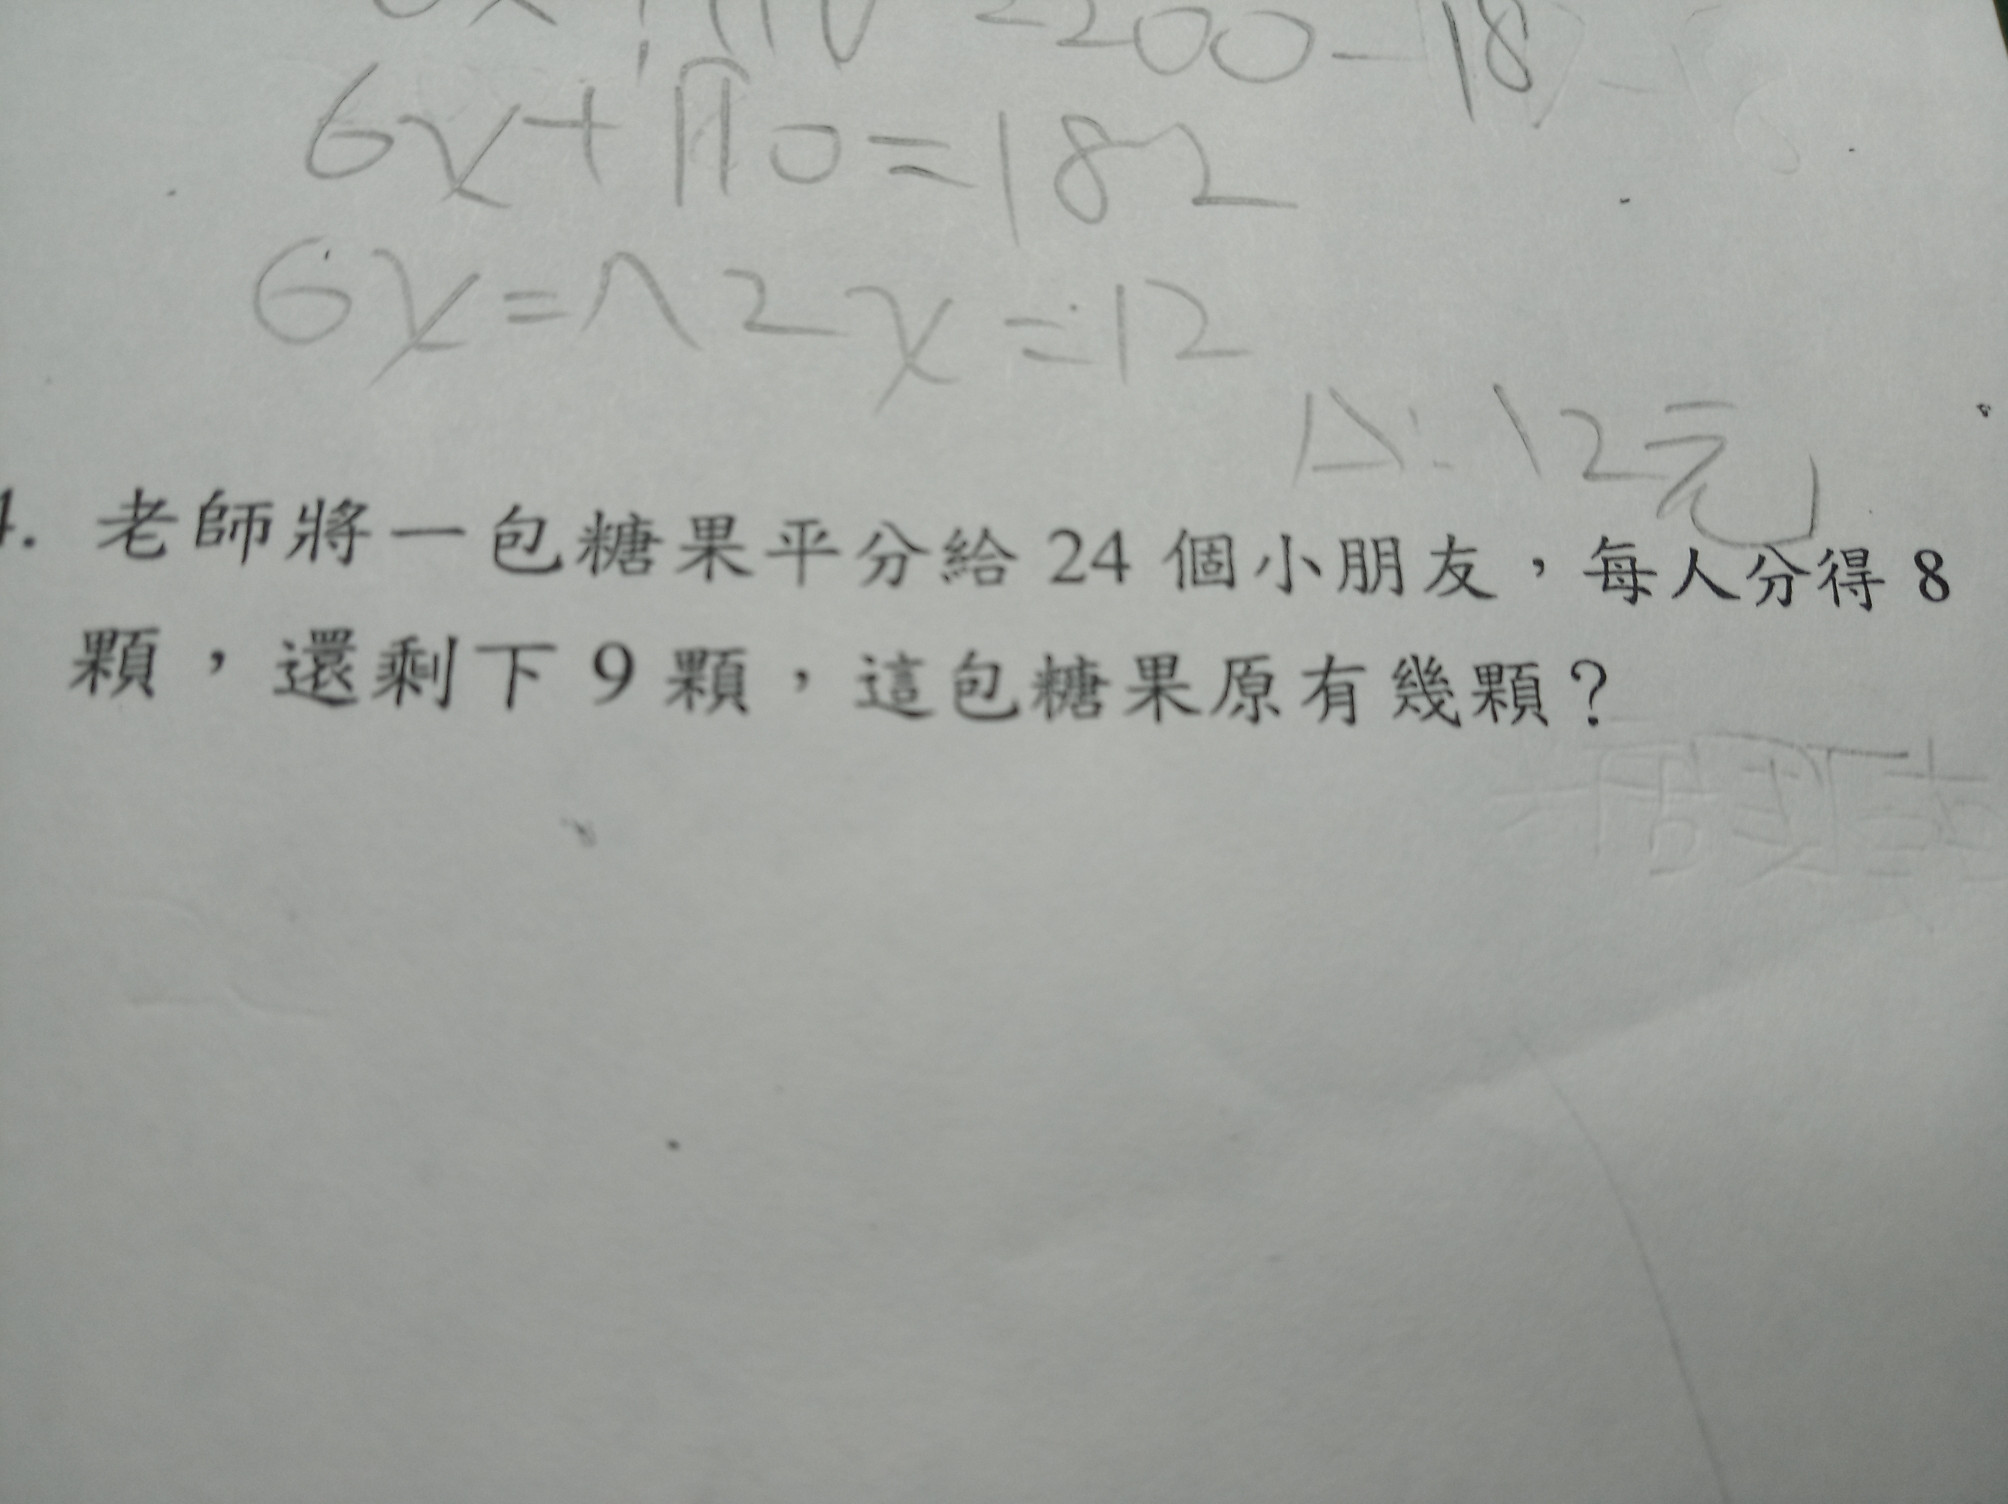 6x+110=182
6x=72 x=12
A:12元
4. 老師將一包糖果平分給 24 個小朋友，每人分得 8
顆，還剩下 9 顆，這包糖果原有幾顆？